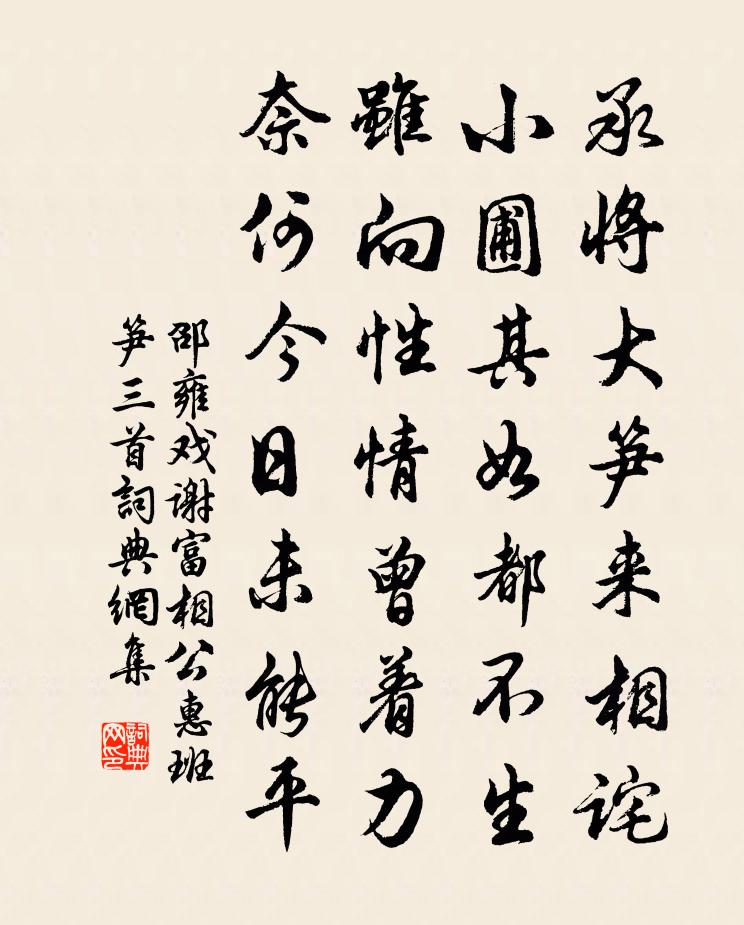 承将大笋来相诧
小圃其如都不生
雖向性情曾着力
奈何今日未能平
邵雍戏谢富相公惠班
笋三首詞典網集
詞典網印